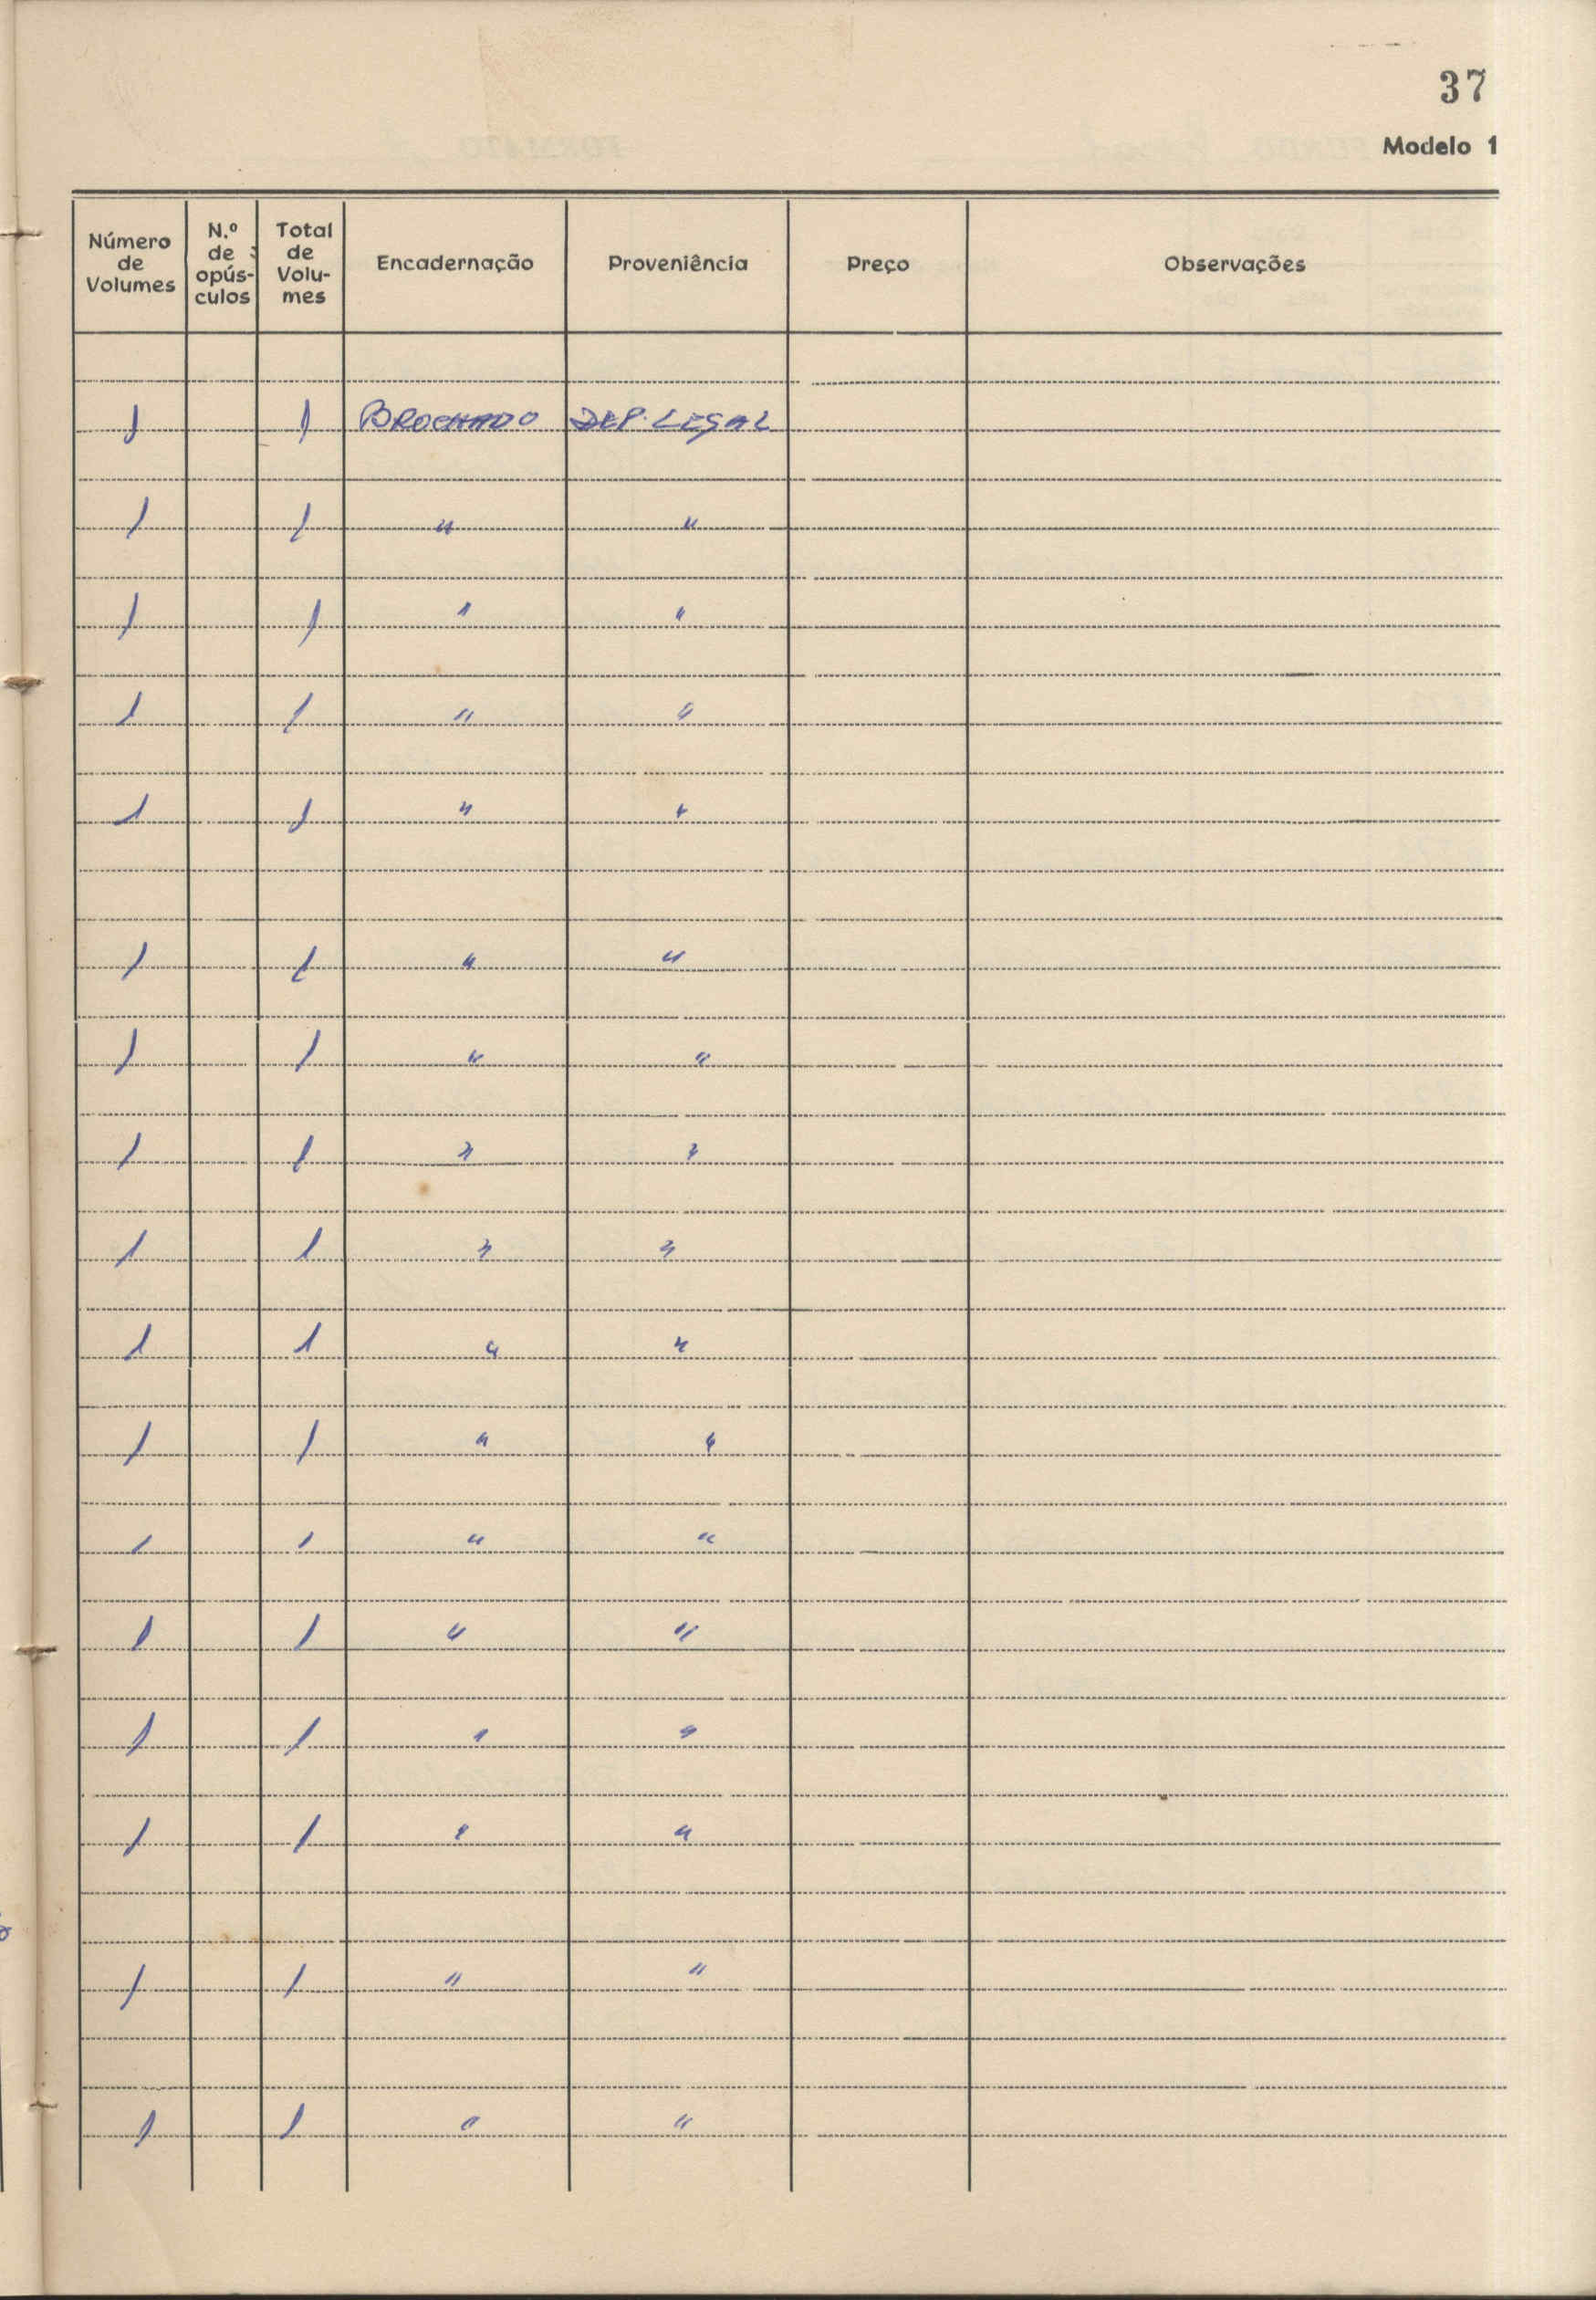 37
Modelo 1
Número de Volumes | N.º de opúsculos | Total de Volumes | Encadernação | Proveniência | Preço | Observações
1 | | 1 | BROCHADO | DEP. LEGAL
1 | | 1 | " | "
1 | | 1 | " | "
1 | | 1 | " | "
1 | | 1 | " | "
1 | | 1 | " | "
1 | | 1 | " | "
1 | | 1 | " | "
1 | | 1 | " | "
1 | | 1 | " | "
1 | | 1 | " | "
1 | | 1 | " | "
1 | | 1 | " | "
1 | | 1 | " | "
1 | | 1 | " | "
1 | | 1 | " | "
1 | | 1 | " | "